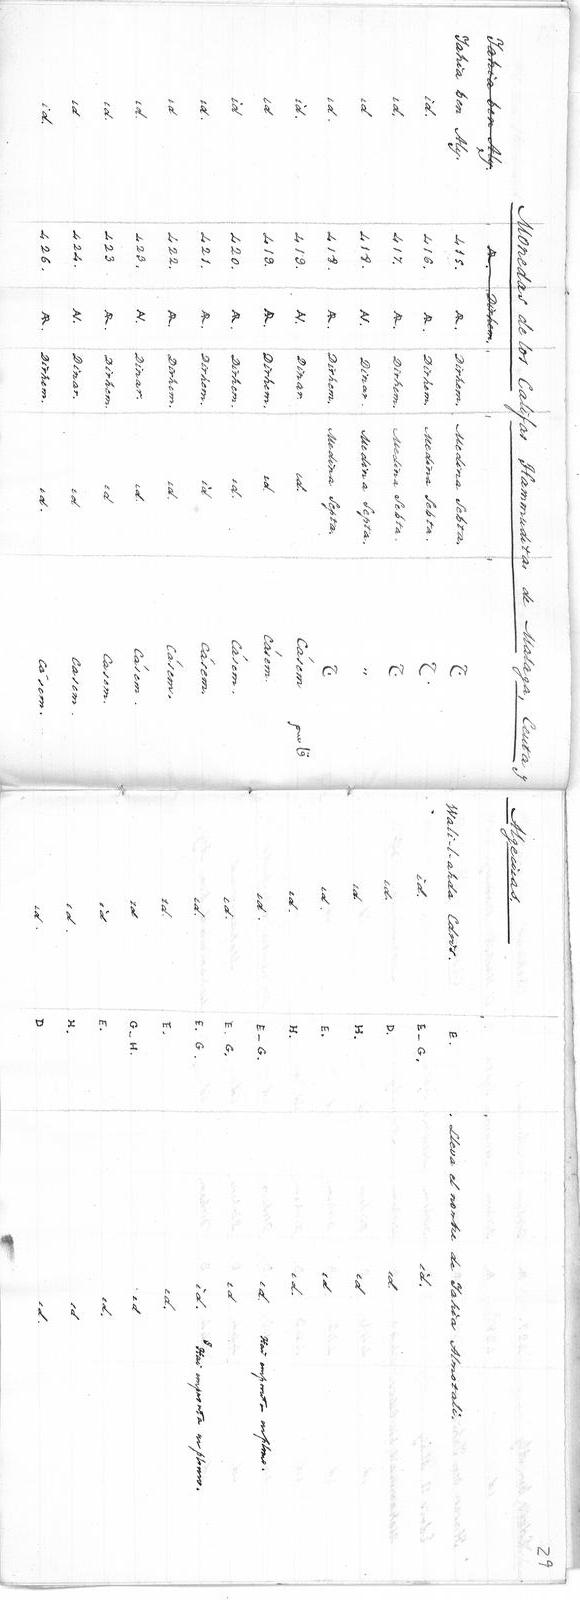 29
Monedas de los Califas Hammuditas de Malaga, Ceuta y Algeciras.
Yahia ben Aly. A. Dirhem.
Yahia ben Aly. 415. A. Dirhem. Medina Sebta. T. Wali-l-ahda Edris. E. Lleva el nombre de Yahia Almotali.
id. 416. A. Dirhem. Medina Sebta. T. id. E-G. id.
id. 417. A. Dirhem. Medina Sebta. T id. D. id
id 418. N. Dinar. Medina Septa. " id H. id
id. 418. A. Dirhem. Medina Septa. T id. E. id
id. 419. N. Dinar id. Cásem id. H. id.
id 419. A. Dirhem. id. Cásem. id. E-G. id. Hai impronta en plomo.
id 420. A. Dirhem. id. Cásem. id. E G. id
id. 421. A. Dirhem. id Cásem. id. E. G. id. Hai impronta en plomo.
id 422. A. Dirhem. id. Cásem. id. E. id.
id 423. N. Dinar. id. Cásem. id G-H. id
id. 423 A. Dirhem. id Casem. id E. id.
id 424. N. Dinar. id Casem. id. H. id
id. 426. A. Dirhem. id. Cásem. id. D id.